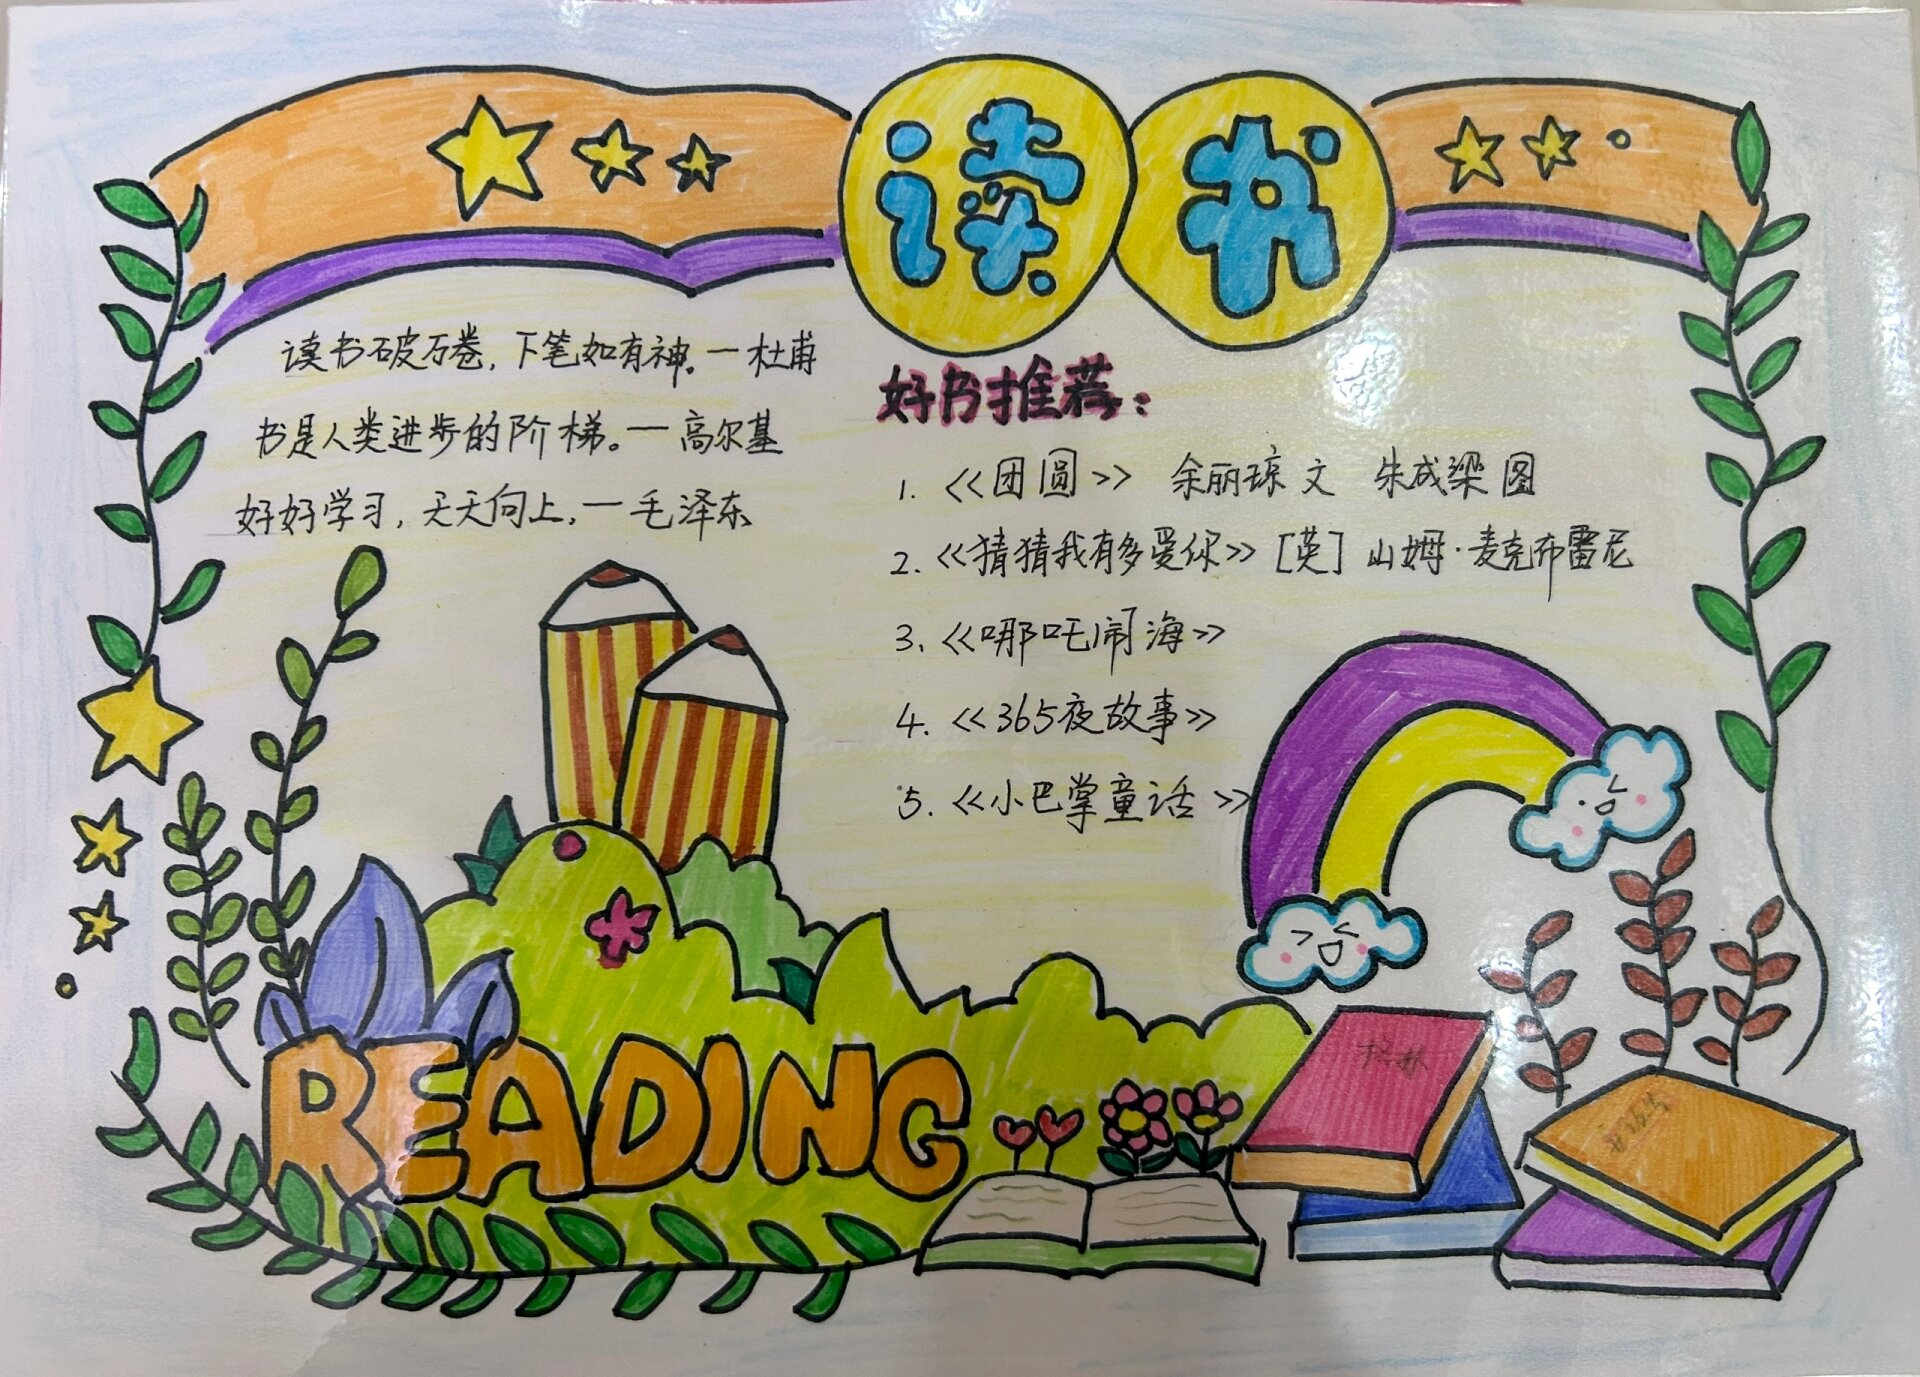 读书
读书破万卷，下笔如有神。—杜甫
书是人类进步的阶梯。—高尔基
好好学习，天天向上，—毛泽东
好书推荐：
1. <<团圆>> 余丽琼 文 朱成梁 图
2. <<猜猜我有多爱你>> [英] 山姆·麦克布雷尼
3. <<哪吒闹海>>
4. <<365夜故事>>
5. <<小巴掌童话>>
READING